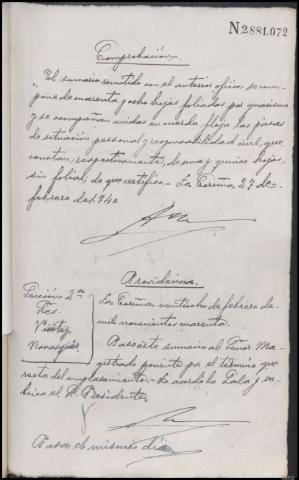 N.2881.072
Comprobación.
El sumario remitido con el anterior oficio, se com-
pone de cuarenta y ocho hojas foliadas por guarismo
y se acompañan unidas en cuerda floja las piezas
de situación personal y responsabilidad civil, que
constan, respectivamente, de una y quince hojas
sin foliar; de que certifico. La Coruña, 27 de
febrero de 1.940.
Providencia.
Sección 2ª
La Coruña veintiocho de febrero de
mil novecientos cuarenta.
Pase este sumario al Señor Ma-
gistrado ponente por el término que
resta del emplazamiento. Lo acordó la Sala y ru-
brica el Sr. Presidente,
Pasa el mismo día